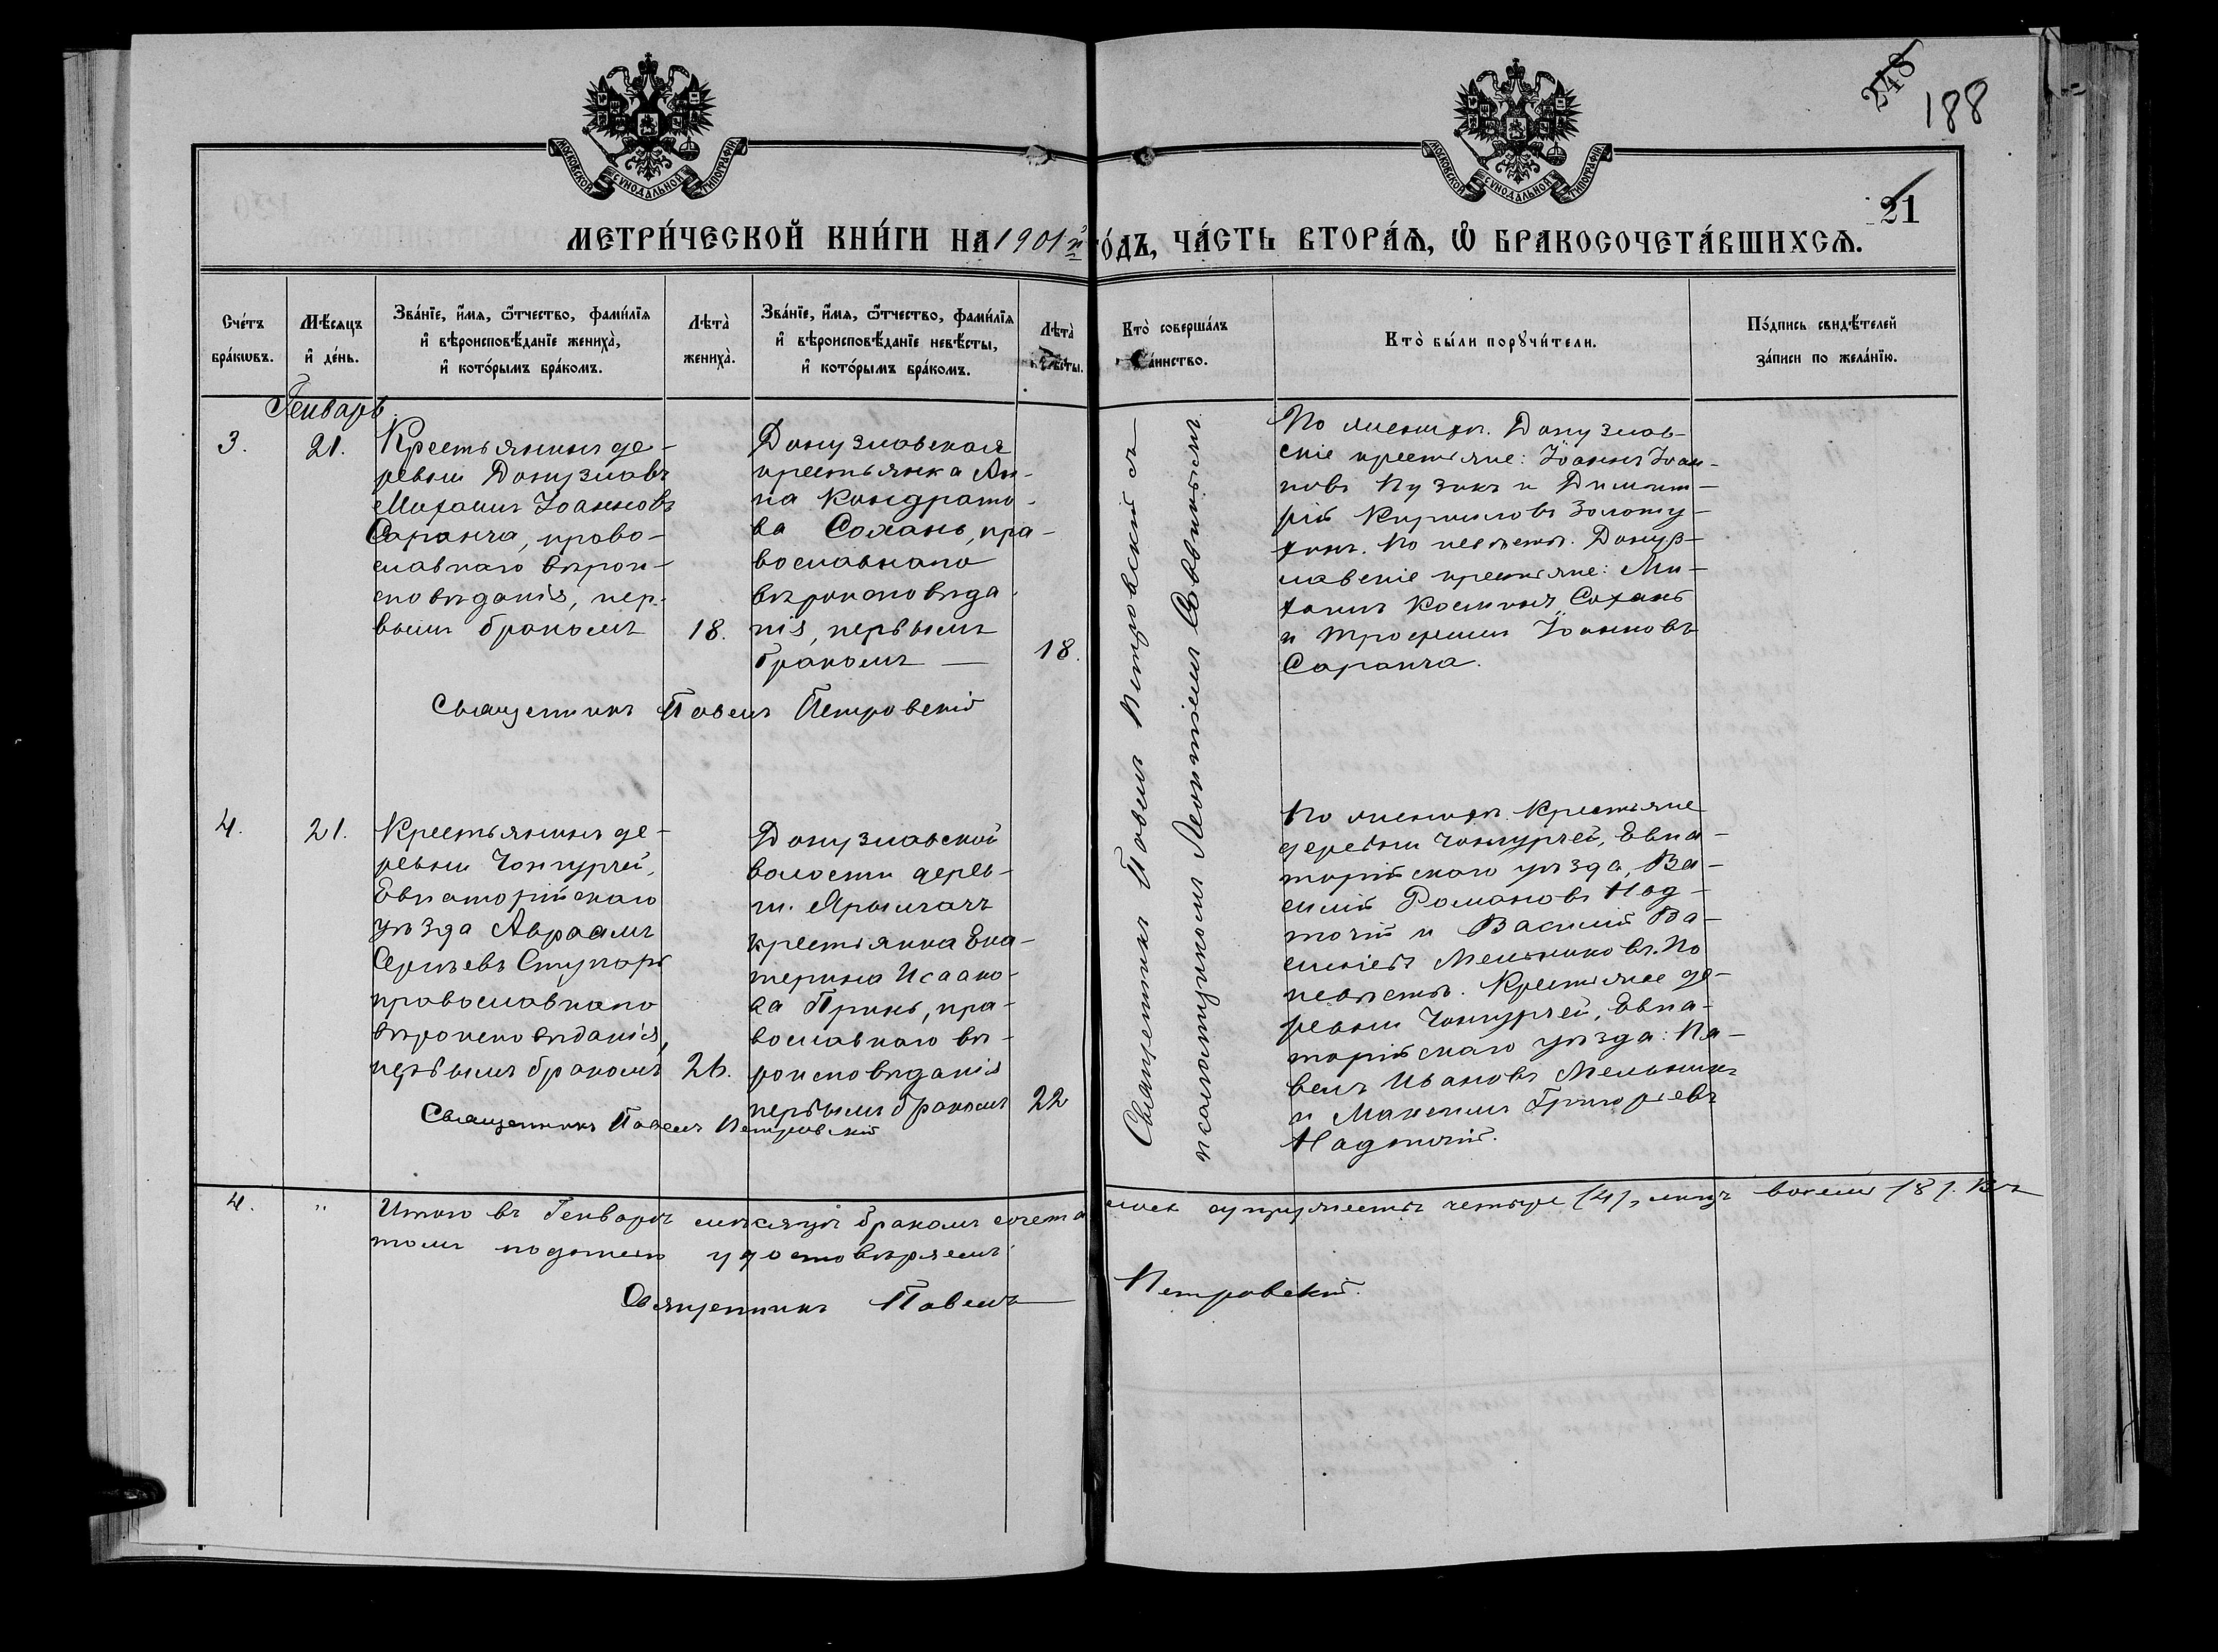 248
188
21
МОСКОВСКОЙ СѴНОДАЛЬНОЙ ТИПОГРАФІИ
МОСКОВСКОЙ СѴНОДАЛЬНОЙ ТИПОГРАФІИ
МЕТРИ́ЧЕСКОЙ КНИ́ГИ НА 1901 й ГО́ДЪ, ЧА́СТЬ ВТОРА́Ѧ, Ѡ҆ БРАКОСОЧЕТА́ВШИХСѦ.
Сче́тъ
бра́кѡвъ.
Мѣ́сяцъ
и҆ де́нь.
Зва́нїе, и҆́мѧ, ѻ҆́тчество, фами́лїѧ
и҆ вѣроисповѣ́данїе жениха̀,
и҆ кото́рымъ бра́комъ.
Лѣта̀
жениха̀.
Зва́нїе, и҆́мѧ, ѻ҆́тчество, фами́лїѧ
и҆ вѣроисповѣ́данїе невѣ́сты,
и҆ кото́рымъ бра́комъ.
Лѣта̀
невѣ́сты.
Кто̀ соверша́лъ
та́инство.
Кто̀ бы́ли порꙋчи́тели.
По́дпись свидѣ́телей
за́писи по жела́нїю.
Генварь
3.
21.
Крестьянинъ де-
ревни Донузлавъ
Михаилъ Іоанновъ
Саранча, право-
славнаго вѣрои-
сповѣданія, пер-
вымъ бракомъ
18.
Донузлавская
крестьянка Ан-
на Кондрато-
ва Сохань, пра-
вославнаго
вѣроисповѣда-
нія, первымъ
бракомъ —
18.
Священникъ Павелъ Петровскій съ
псаломщикомъ Леонтіемъ Саввинымъ
По женихѣ. Донузлав-
скіе крестьяне: Іоаннъ Іоан-
новъ Пузикъ и Димит-
рій Кирилловъ Золоту-
хинъ. По невѣстѣ. Донуз-
лавскіе крестьяне: Ми-
хаилъ Косминъ Сохань
и Трофимъ Іоанновъ
Саранча.
Священникъ Павелъ Петровскій
4.
21.
Крестьянинъ де-
ревни Чонгурчей,
Евпаторійскаго
уѣзда Авраамъ
Сергѣевъ Ступарь
православнаго
вѣроисповѣданія,
первымъ бракомъ
26.
Донузлавской
волости дерев-
ни Ярылгачъ
крестьянка Ека-
терина Исаако-
ва Принь, пра-
вославнаго вѣ-
роисповѣданія
первымъ бракомъ
22
По женихѣ. Крестьяне
деревни Чонгурчей, Евпа-
торійскаго уѣзда, Ва-
силій Романовъ Над-
точій и Василій Ва-
сильевъ Мельниковъ. По
невѣстѣ. Крестьяне де-
ревни Чонгурчей, Евпа-
торійскаго уѣзда: Па-
велъ Ивановъ Мельникъ
и Максимъ Григорьевъ
Надточій.
Священникъ Павелъ Петровскій
4.
"
Итого въ Генварѣ мѣсяцѣ бракомъ сочеталось супружествъ четыре (4), лицъ восемь (8). Въ
томъ подписью удостовѣряемъ
Священникъ Павелъ Петровскій.